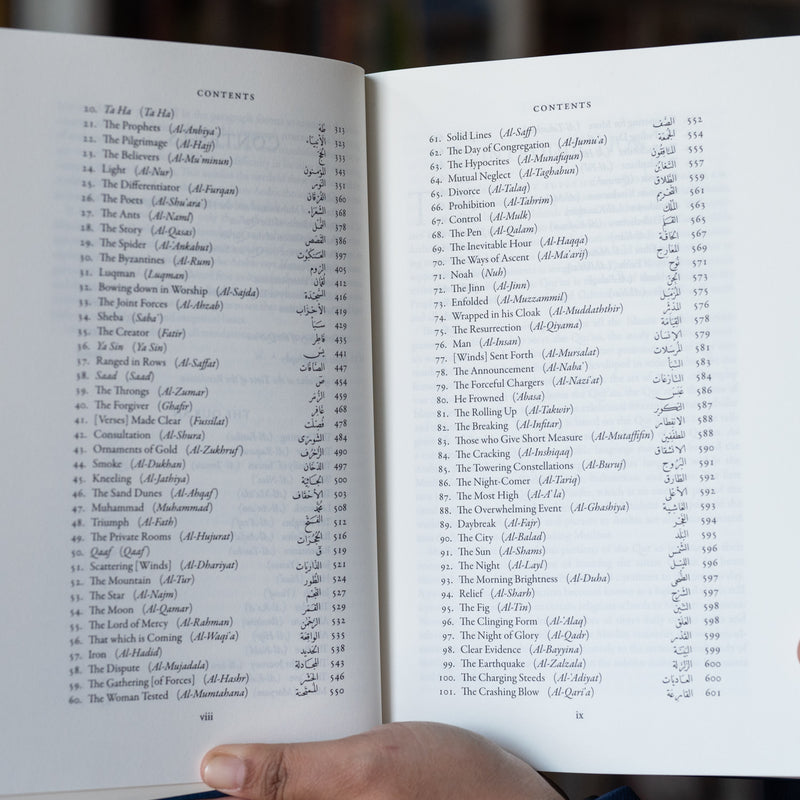 CONTENTS
20. Ta Ha (Ta Ha) طه 313
21. The Prophets (Al-Anbiya') الأنبياء 323
22. The Pilgrimage (Al-Hajj) الحج 333
23. The Believers (Al-Mu'minun) المؤمنون 343
24. Light (Al-Nur) النور 351
25. The Differentiator (Al-Furqan) الفرقان 360
26. The Poets (Al-Shu'ara') الشعراء 368
27. The Ants (Al-Naml) النمل
28. The Story (Al-Qasas) القصص 386
29. The Spider (Al-'Ankabut) العنكبوت 397
30. The Byzantines (Al-Rum) الروم 405
31. Luqman (Luqman) لقمان 412
32. Bowing down in Worship (Al-Sajda) السجدة 416
33. The Joint Forces (Al-Ahzab) الأحزاب 419
34. Sheba (Saba') سبأ 429
35. The Creator (Fatir) فاطر 435
36. Ya Sin (Ya Sin) يس 441
37. Ranged in Rows (Al-Saffat) الصافات 447
38. Saad (Saad) ص 454
39. The Throngs (Al-Zumar) الزمر 459
40. The Forgiver (Ghafir) غافر 468
41. [Verses] Made Clear (Fussilat) فصلت 478
42. Consultation (Al-Shura) الشورى 484
43. Ornaments of Gold (Al-Zukhruf) الزخرف 490
44. Smoke (Al-Dukhan) الدخان 497
45. Kneeling (Al-Jathiya) الجاثية 500
46. The Sand Dunes (Al-Ahqaf) الأحقاف 503
47. Muhammad (Muhammad) محمد 508
48. Triumph (Al-Fath) الفتح 512
49. The Private Rooms (Al-Hujurat) الحجرات 516
50. Qaaf (Qaaf) ق 519
51. Scattering [Winds] (Al-Dhariyat) الذاريات 521
52. The Mountain (Al-Tur) الطور 524
53. The Star (Al-Najm) النجم 527
54. The Moon (Al-Qamar) القمر 529
55. The Lord of Mercy (Al-Rahman) الرحمن 532
56. That which is Coming (Al-Waqi'a) الواقعة 535
57. Iron (Al-Hadid) الحديد 538
58. The Dispute (Al-Mujadala) المجادلة 543
59. The Gathering [of Forces] (Al-Hashr) الحشر 546
60. The Woman Tested (Al-Mumtahana) الممتحنة 550
viii
CONTENTS
61. Solid Lines (Al-Saff) الصف 552
62. The Day of Congregation (Al-Jumu'a) الجمعة 554
63. The Hypocrites (Al-Munafiqun) المنافقون 555
64. Mutual Neglect (Al-Taghabun) التغابن 557
65. Divorce (Al-Talaq) الطلاق 559
66. Prohibition (Al-Tahrim) التحريم 561
67. Control (Al-Mulk) الملك 563
68. The Pen (Al-Qalam) القلم 565
69. The Inevitable Hour (Al-Haqqa) الحاقة 567
70. The Ways of Ascent (Al-Ma'arij) المعارج 569
71. Noah (Nuh) نوح 571
72. The Jinn (Al-Jinn) الجن 573
73. Enfolded (Al-Muzzammil) المزمل 575
74. Wrapped in his Cloak (Al-Muddaththir) المدثر 576
75. The Resurrection (Al-Qiyama) القيامة 578
76. Man (Al-Insan) الإنسان 579
77. [Winds] Sent Forth (Al-Mursalat) المرسلات 581
78. The Announcement (Al-Naba') النبأ 583
79. The Forceful Chargers (Al-Nazi'at) النازعات 584
80. He Frowned ('Abasa) عبس 586
81. The Rolling Up (Al-Takwir) التكوير 587
82. The Breaking (Al-Infitar) الانفطار 588
83. Those who Give Short Measure (Al-Mutaffifin) المطففين 588
84. The Cracking (Al-Inshiqaq) الانشقاق 590
85. The Towering Constellations (Al-Buruj) البروج 591
86. The Night-Comer (Al-Tariq) الطارق 592
87. The Most High (Al-A'la) الأعلى 592
88. The Overwhelming Event (Al-Ghashiya) الغاشية 593
89. Daybreak (Al-Fajr) الفجر 594
90. The City (Al-Balad) البلد 595
91. The Sun (Al-Shams) الشمس 596
92. The Night (Al-Layl) الليل 596
93. The Morning Brightness (Al-Duha) الضحى 597
94. Relief (Al-Sharh) الشرح 597
95. The Fig (Al-Tin) التين 598
96. The Clinging Form (Al-'Alaq) العلق 598
97. The Night of Glory (Al-Qadr) القدر 599
98. Clear Evidence (Al-Bayyina) البينة 599
99. The Earthquake (Al-Zalzala) الزلزلة 600
100. The Charging Steeds (Al-'Adiyat) العاديات 600
101. The Crashing Blow (Al-Qari'a) القارعة 601
ix